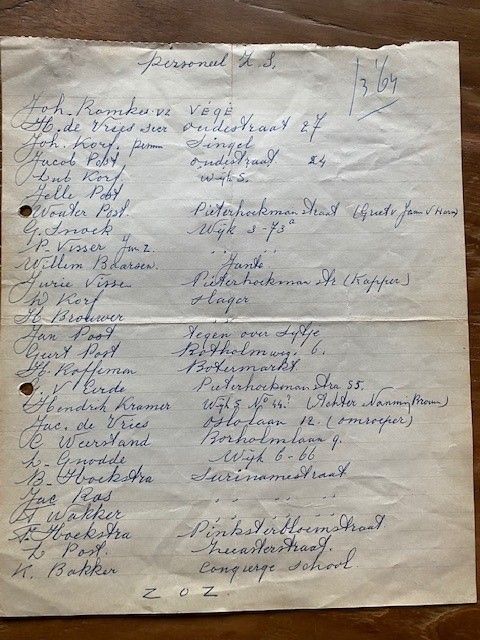 personeel Z.S.
1/3 '64
Joh. Romkes vz VéGé
H. de Vries Sier oudestraat 27
Joh. Korf. pzmm Singel
Jacob Post oudestraat. 24
Lub Korf Wijk 5.
Jelle Post
Wouter Post. Pieterhoekmanstraat (Griet v Jaan v Harm)
G. Snoek Wijk 3-73a
P. Visser Jan z. " " "
Willem Baarsen. Jante
Jurie Visse Pieterhoekman str (Kapper)
L. Korf slager
H. Brouwer " "
Jan Post tegen over Sytje
Geert Post Botholmweg. 6.
H. Koffeman Botermarkt
V Eerde Pieterhoekman Stra 55.
Hendrik Kramer Wijk 5 No 44? (Achter Nanning Brouw)
Jac. de Vries oslolaan 12. (omroeper)
C Weerstand Borholmlaan 9.
L. Gnodde Wijk 6-66
B. Hoekstra Surinamestraat
Jac Ras " " "
T Wakker " " "
F. Hoekstra Pinksterbloemstraat
L Post. Zeeasterstraat.
K. Bakker Conquerge School.
Z O Z.